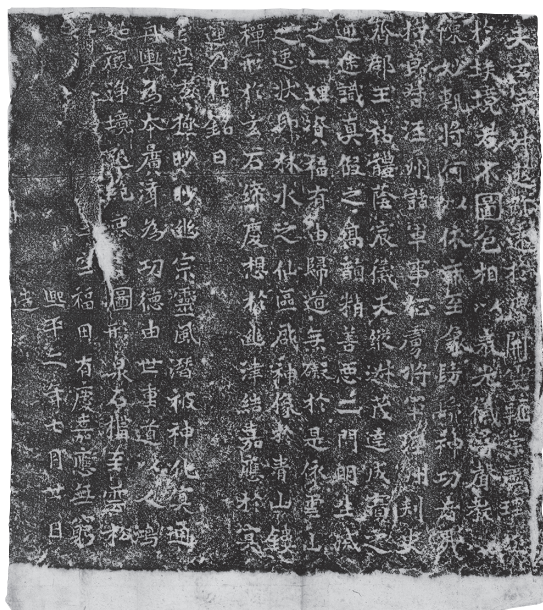 夫玄宗沖邈跡遠於塵開靈範崇虛理
於埃境若不圖色相以表光儀尋聲教以
陳妙軌將何以依希至象髣髴神功者哉
持節督涇州諸軍事征虜將軍涇州刺史
齊郡王祐體蔭宸儀天縱淑茂達成實之
通途識真假之高韻精善惡二門明生滅
之一理資福有由歸道無礙於是依雲山
之逸狀即林水之仙區啟神像於青山鏤
禪形於玄石締慶想於幽津結嘉應於冥
運乃作銘曰
茫茫玄極眇眇幽宗靈風潛被神化冥通
舟輿為本廣濟為功德由世重道以人鴻
臨觀淨境絕圖形泉石構至雲松
空福田有慶嘉應無窮
熙平二年七月廿日
造